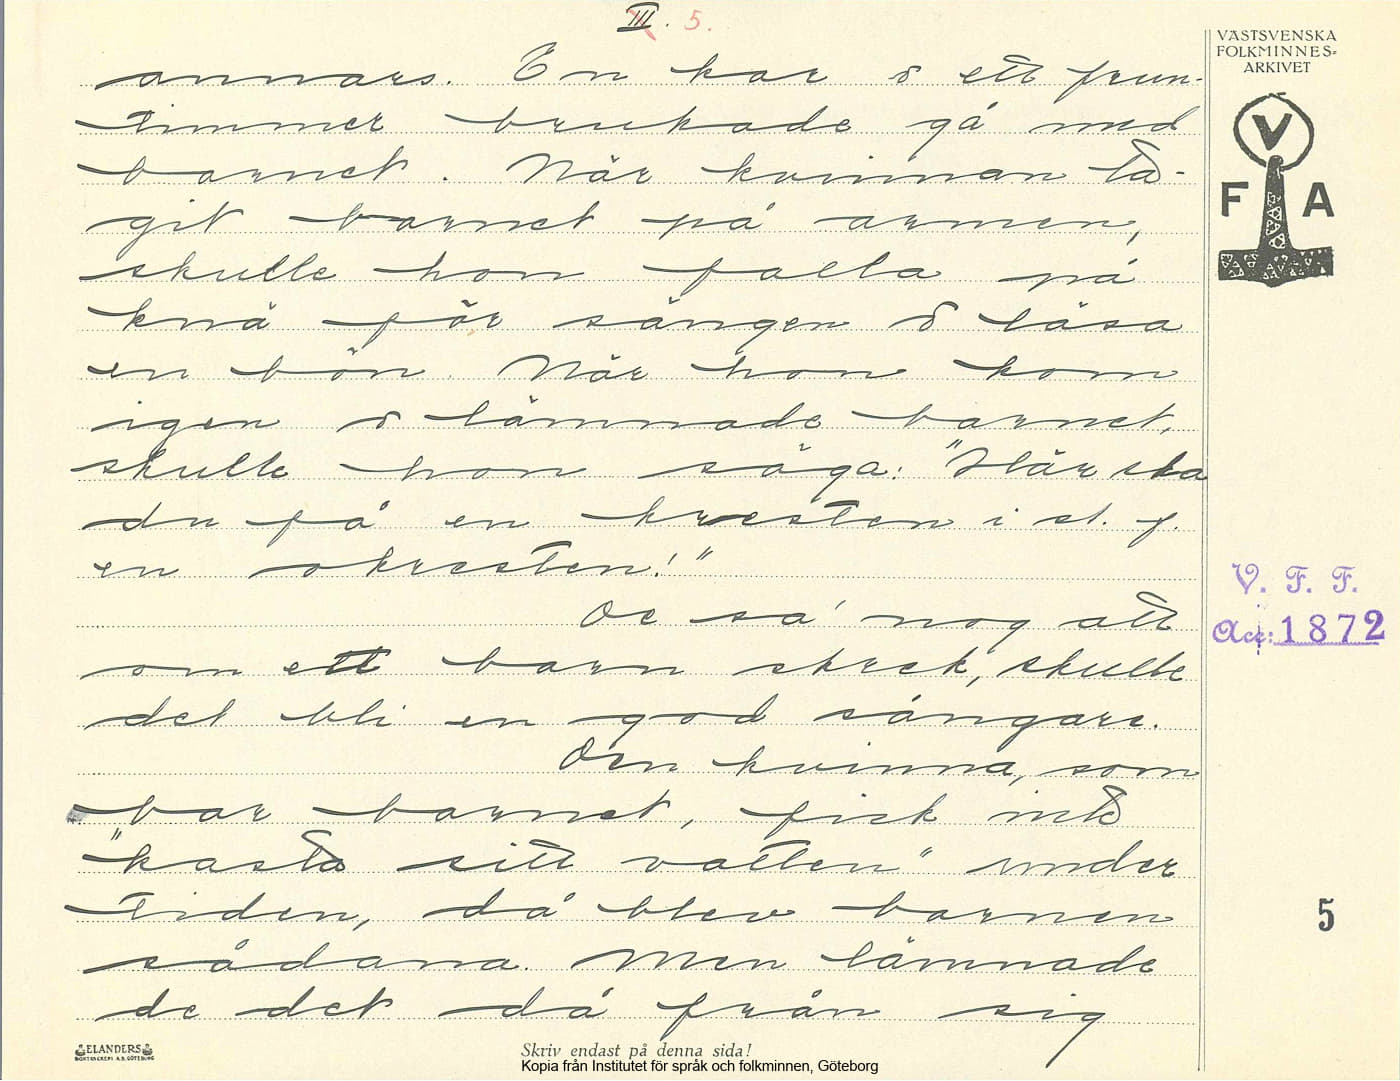 III. 5.
VÄSTSVENSKA
FOLKMINNES=
ARKIVET
V
F A
annars. En kar o ett frun-
timmer brukade gå med
barnet. När kvinnan ta-
git barnet på armen,
skulle hon falla på
knä för sängen o läsa
en bön. När hon kom
igen o lämnade barnet,
skulle hon säga: "Här ska
du få en kresten i st. f.
en okresten!"
De sa' nog att
om ett barn skrek, skulle
det bli en god sångare.
Den kvinna, som
bar barnet, fick inte
"kasta sitt vatten" under
tiden, då blev barnen
sådana. Men lämnade
de det då från sig
V. F. F.
Acc: 1872
5
ELANDERS
BOKTRYCKERI A.B. GÖTEBORG
Skriv endast på denna sida!
Kopia från Institutet för språk och folkminnen, Göteborg